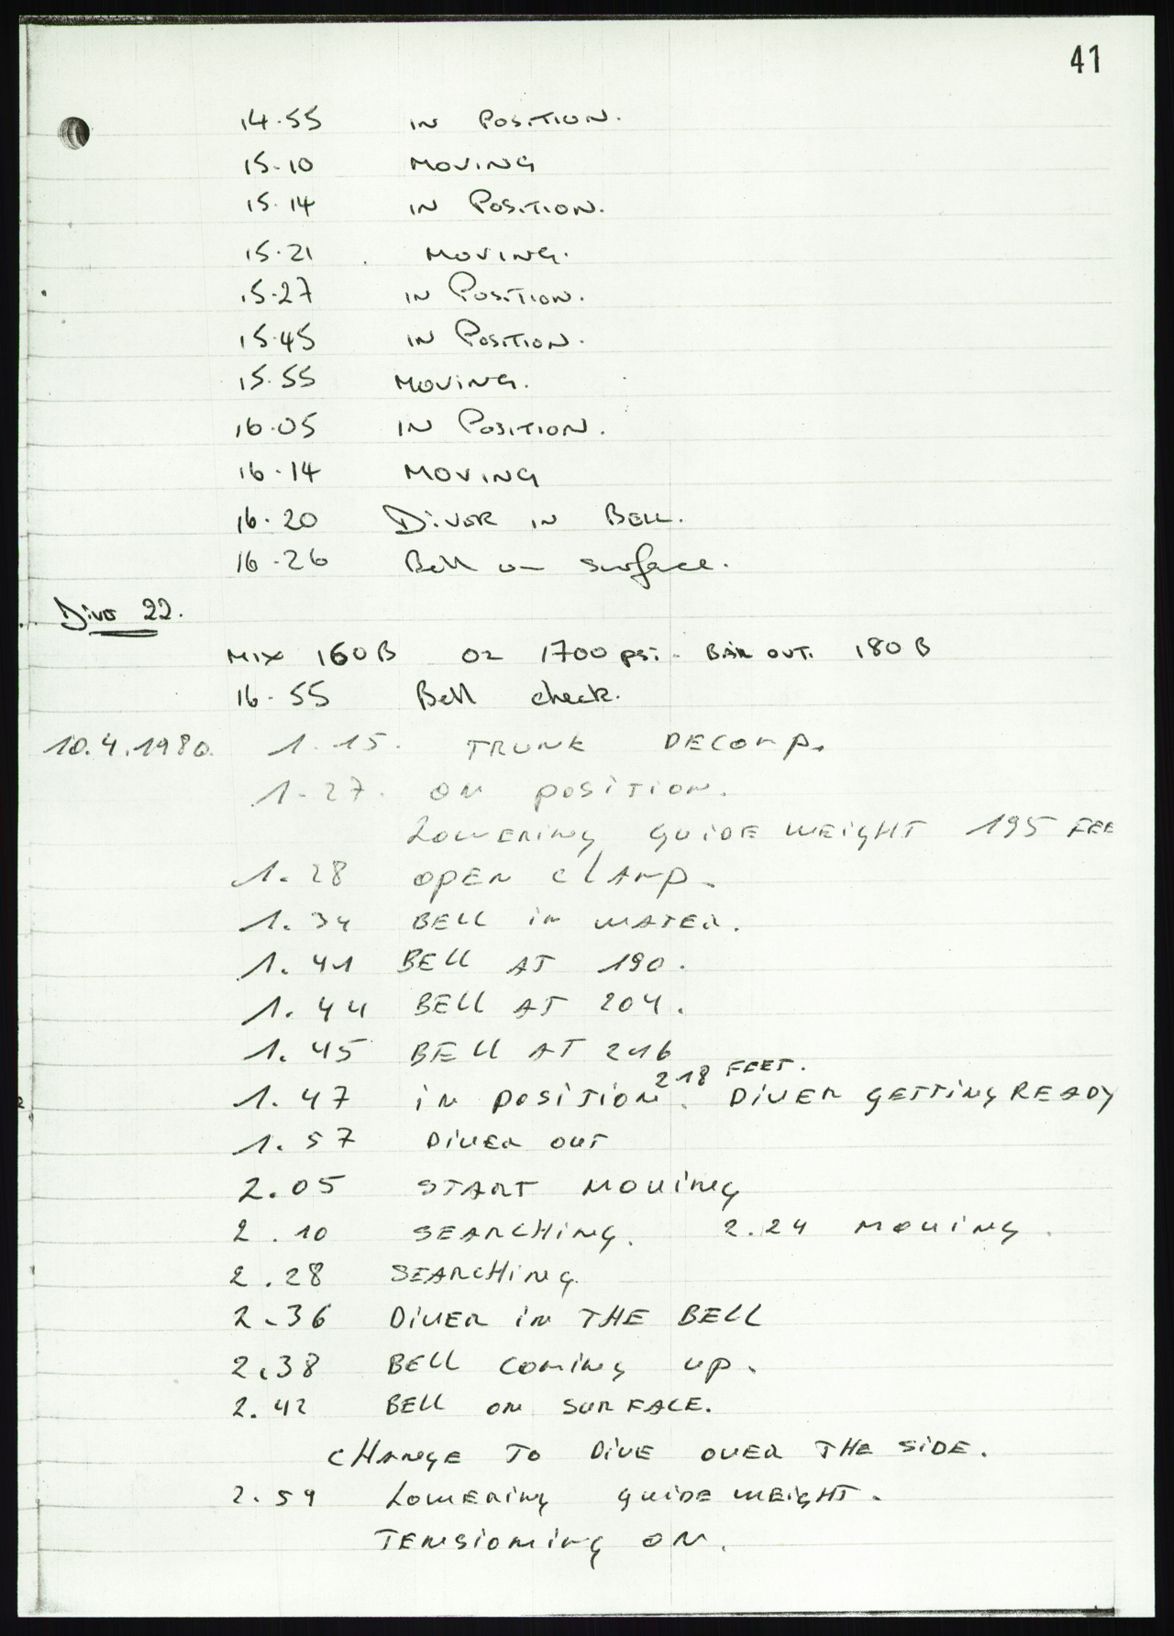 41
14.55 IN POSITION.
15.10 MOVING
15.14 IN POSITION.
15.21 MOVING.
15.27 IN POSITION.
15.45 IN POSITION.
15.55 MOVING.
16.05 IN POSITION.
16.14 MOVING
16.20 DIVER IN BELL.
16.26 Bell on surface.
Dive 22.
MIX 160B O2 1700 psi. BAIL OUT. 180 B
16.55 Bell check.
10.4.1980. 1.15. TRUNK DECOMP.
1.27. ON POSITION.
LOWERING GUIDE WEIGHT 195 FEE
1.28 OPEN CLAMP.
1.34 BELL IN WATER.
1.41 BELL AT 190.
1.44 BELL AT 204.
1.45 BELL AT 216
1.47 IN POSITION 218 FEET. DIVER GETTING READY
1.57 DIVER OUT
2.05 START MOVING
2.10 SEARCHING. 2.24 MOVING.
2.28 SEARCHING
2.36 DIVER IN THE BELL
2.38 BELL COMING UP.
2.42 BELL ON SURFACE.
CHANGE TO DIVE OVER THE SIDE.
2.59 LOWERING GUIDE WEIGHT.
TENSIONING ON.